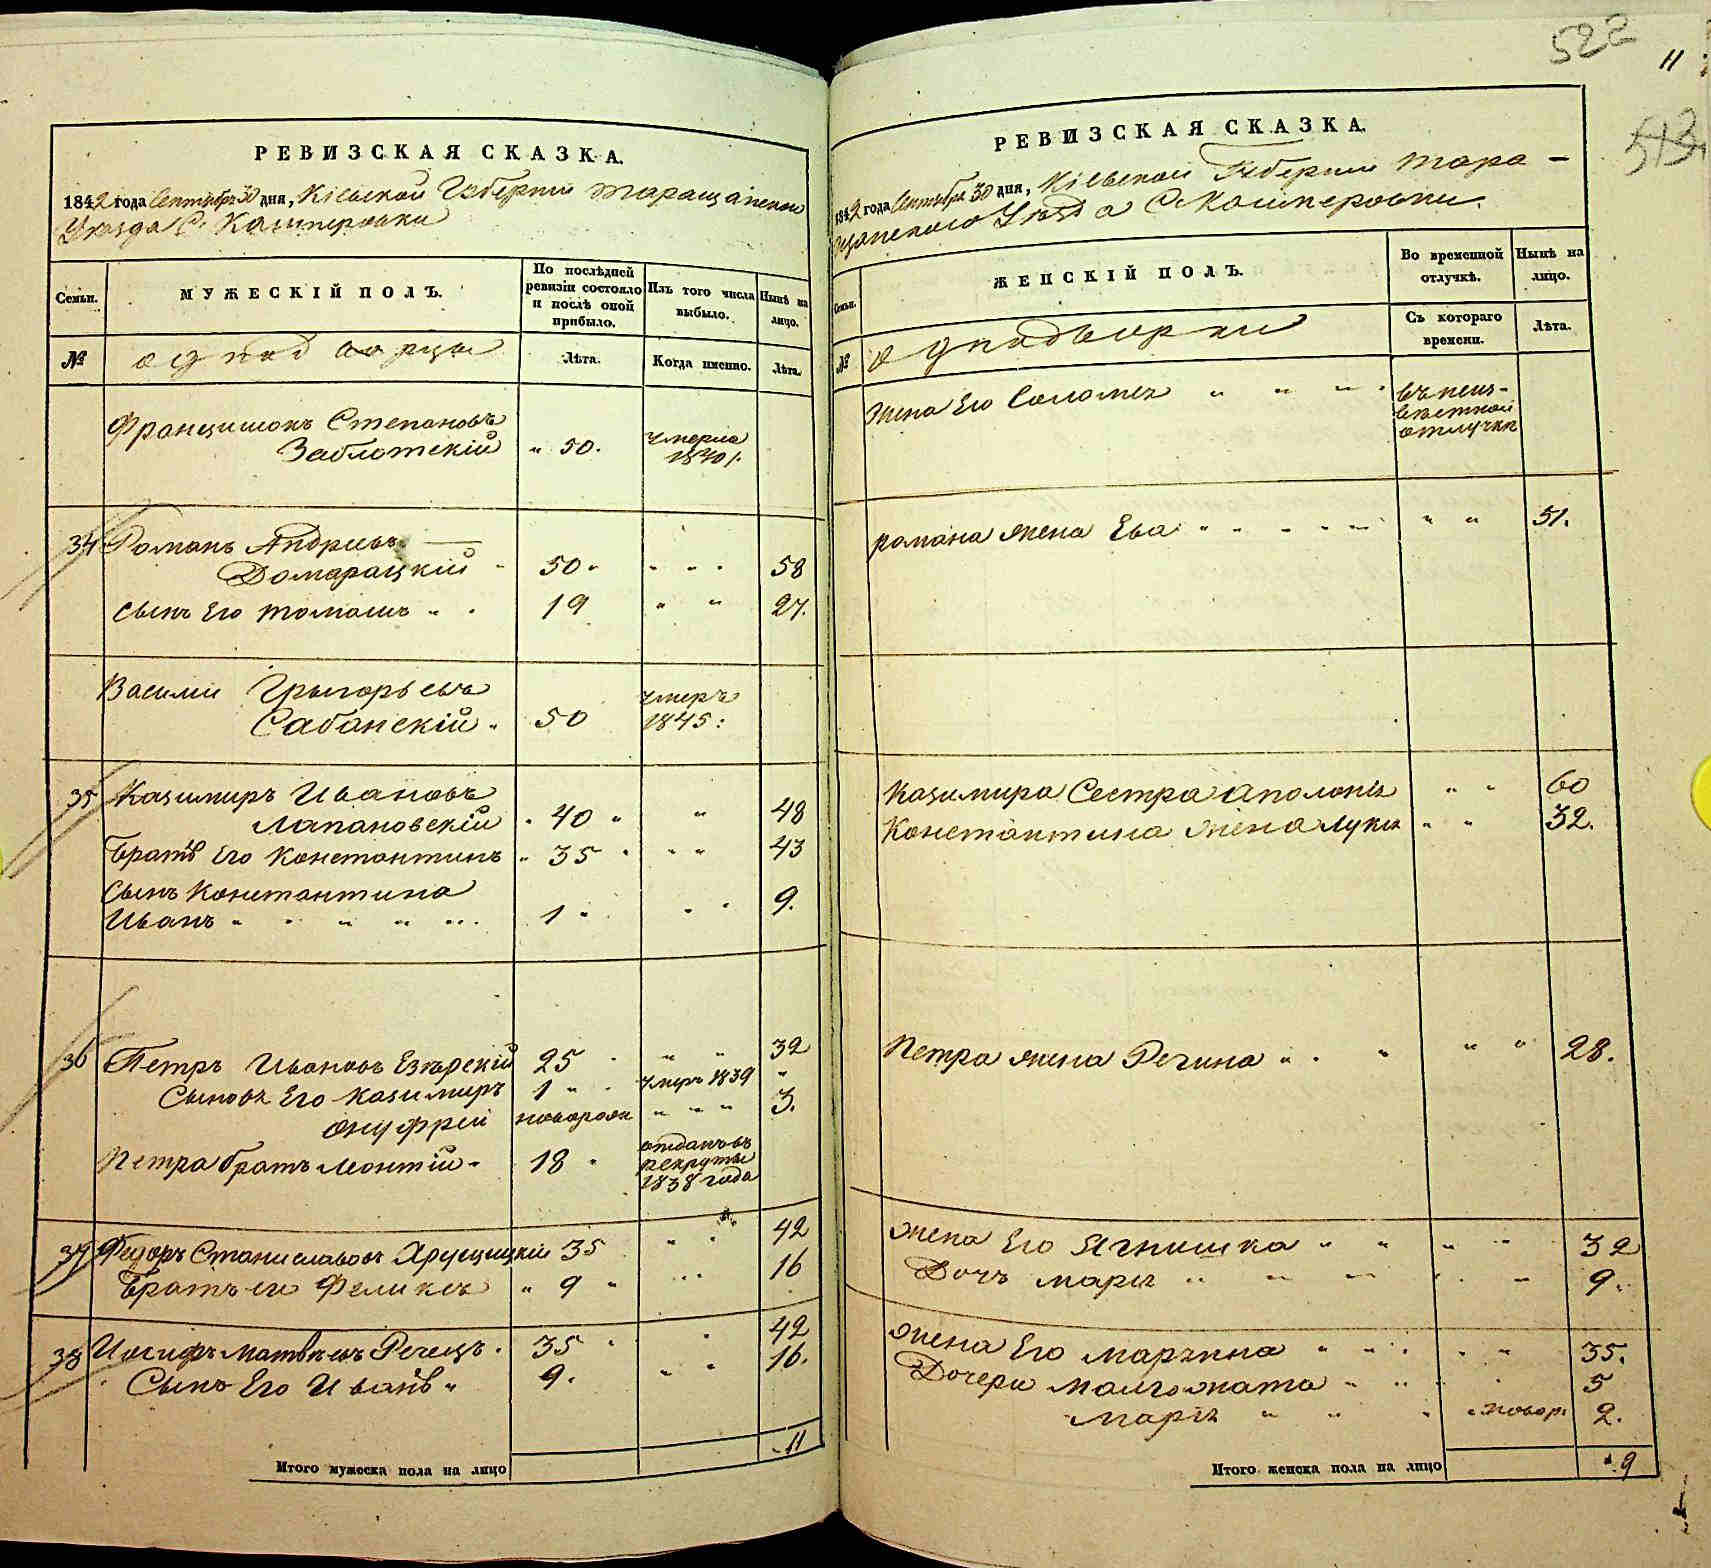 РЕВИЗСКАЯ СКАЗКА.
1842 года Сентября 30 дня, Кіевской Губерніи Таращанского
Уѣзда С. Кашперовки
Семьи.
МУЖЕСКІЙ ПОЛЪ.
По послѣдней
ревизіи состояло
и послѣ оной
прибыло.
Изъ того числа
выбыло.
Нынѣ на
лицо.
№
однодворцы
Лѣта.
Когда именно.
Лѣта.
Францишокъ Степановъ
Заблотскій " 50. умерла 1840 г.
34 Романъ Андриевъ
Домарацкій 50 " " " 58
сынъ Его томашъ " " 19 " " 27.
Василий Григорьевъ
Сабанскій " 50 умеръ 1845:
35 Казимиръ Ивановъ
Лапановскій " 40 " " 48
Братъ Его Константинъ " 35 " " " 43
Сынъ Константина
Иванъ " " " " " 1 " " " 9.
36 Петръ Ивановъ Езѣрскій 25 " " 32
Сыновя Его Казимиръ 1 " умеръ 1839 "
Онуфрій новорожд " " " 3.
Петра братъ Леонтій " 18 " отданъ въ
рекруты
1838 года
37 Федоръ Станиславовъ Хрущицкій 35 " " 42
Братъ его Феликсъ " 9 " " " 16
38 Иосифъ Матвѣевъ Речецъ. 35 " " 42
Сынъ Его Иванъ " 9. " " 16.
Итого мужеска пола на лицо 11
522
11
513
РЕВИЗСКАЯ СКАЗКА.
1842 года Сентября 30 дня, Кіевской Губерніи Тара-
щанского Уѣзда С. Кашперовки.
Семьи.
ЖЕНСКІЙ ПОЛЪ.
Во временной
отлучкѣ.
Нынѣ на
лицо.
№
однодворки
Съ котораго
времени.
Лѣта.
Жена Его Саломея " " " " въ неиз-
вѣстной
отлучкѣ
романа жена Ева " " " " " " " 51.
Казимира Сестра Аполонія " " 60
Константина жена Лукія " " 32.
Петра жена Регина " " " " " 28.
жена Его Ягнишка " " " " 32
Дочь марія " " " " " 9.
жена Его Маріяна " " " " " 35.
Дочери Малгожата " " " " 5
Марія " " " " новор. 2.
Итого женска пола на лицо 9